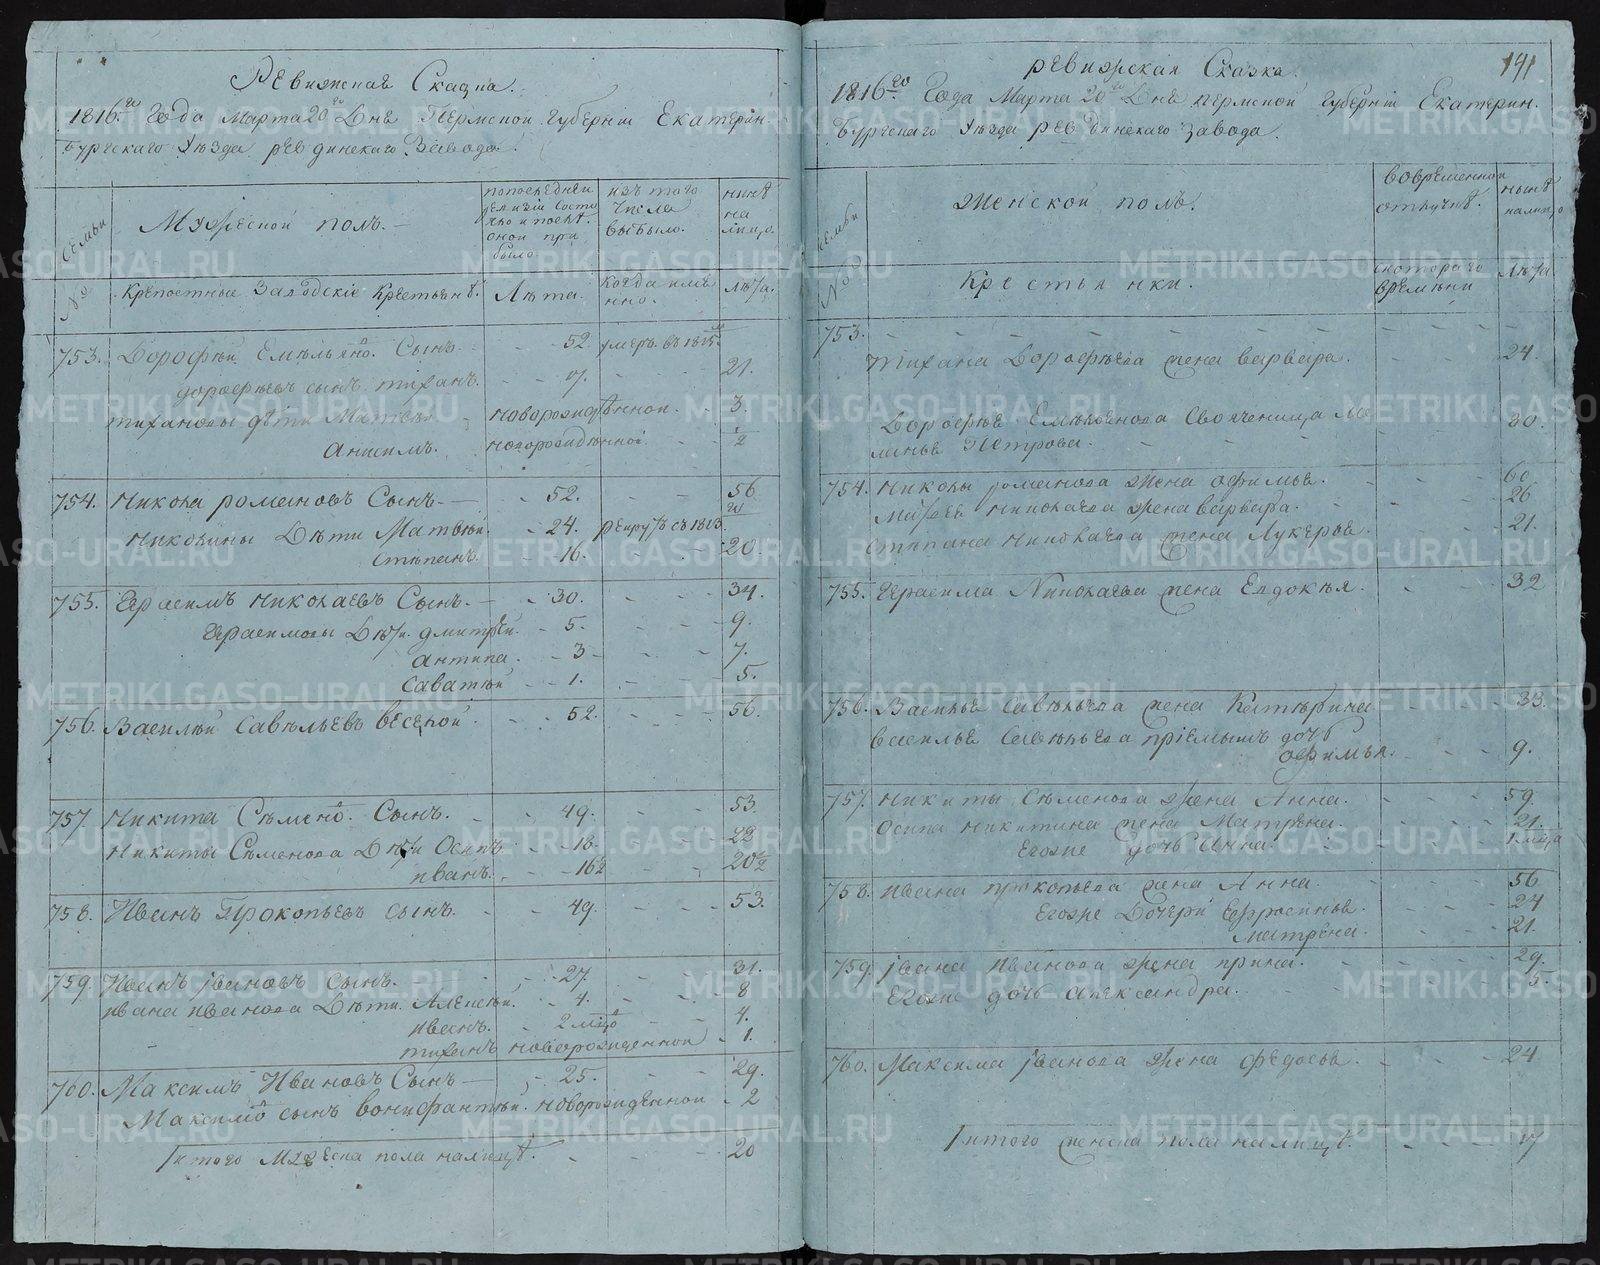 Ревижская Сказка.
1816го Года Марта 20го Дня Пермской губернiи Екатерин-
бургскаго Уѣзда ревдинскаго Завода.
№ семьи
Мужеской полъ.
попоследней ревизiи состояло и после оной прибыло
изъ того числа выбыло.
нинѣ на лицо.
Крѣпостные Заводскiе Крестьянѣ.
Лѣта.
Когда имянно.
лѣта.
753. Дорофѣй Емѣльяно. Сынъ. 52. умеръ въ 1815.
дорофѣевъ сынъ тиханъ. 7. 21.
тихановы дѣти Матвѣй новорожденной. 3.
Анисимъ. новорожденной. 1/2
754. Никола романовъ Сынъ. 52. 56
Николины Дѣти Матвѣй. 24. рекрутъ съ 1813.
Степанъ. 16. 20.
755. Герасимъ Николаевъ Сынъ. 30. 34.
Герасимовы Дѣти. дмитрѣй. 5. 9.
Антипа. 3 7.
Саватѣй 1. 5.
756. Василѣй Савѣльевъ веселой. 52. 56.
757. Никита Сѣмено. Сынъ. 49. 53.
Никиты Сѣменова Дѣти Осипъ 18. 22
иванъ. 16 1/2 20 1/2
758. Иванъ Прокопьевъ сынъ. 49. 53.
759. Иванъ iвановъ сынъ. 27. 31.
ивана иванова Дѣти. Алексѣй. 4. 8
иванъ. 2 мѣс. 4.
тиханъ новорожденной 1.
760. Максимъ Ивановъ Сынъ 25. 29.
Максимо сынъ вонифантѣй. новорожденной 2
Iитого Мужеска пола налицѣ. 20
191
ревижская Сказка.
1816го Года Марта 20го Дня пермской губернiи Екатерин-
бургскаго Уѣзда ревдинскаго завода.
№ семьи
Женской полъ.
вовременной отлучкѣ.
нынѣ налицо
Крестьянки.
скотораго времѣни
Лѣта
753.
Тихана Дорофѣева жена варвара. 24.
Дорофѣя Емѣльянова Своячениица Ма-
ланья Пѣтрова. 30.
754. Николы романова жена офимья. 60.
Матвея николаева жена варвара. 26
Степана Николаева жена Лукерья 21.
755. Герасима Николаева жена Евдокья. 32
756. Василья Савѣльева жена Катѣрина 33.
василья Савѣльева прiемышъ дочь
офимья. 9.
757. Никиты Сѣменова жена Анна. 59.
Осипа Никитина жена Матрена. 21.
Егоже дочь Анна.
758. ивана прокопьева жена Анна. 56
Егоже Дочери Ефросинья. 24
Матрена. 21.
759. iвана иванова жена ирина. 29.
Егоже дочь Александра. 5.
760. Максима iванова жена федосья. 24
Iитого женска пола налицѣ. 17
METRIKI.GASO-URAL.RU